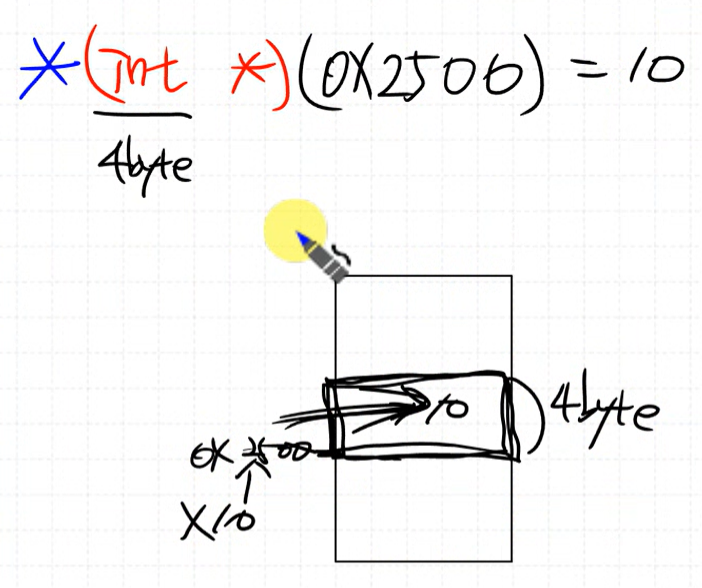 *(int *)(0X2500) = 10
4byte
10
4byte
0X2500
X10